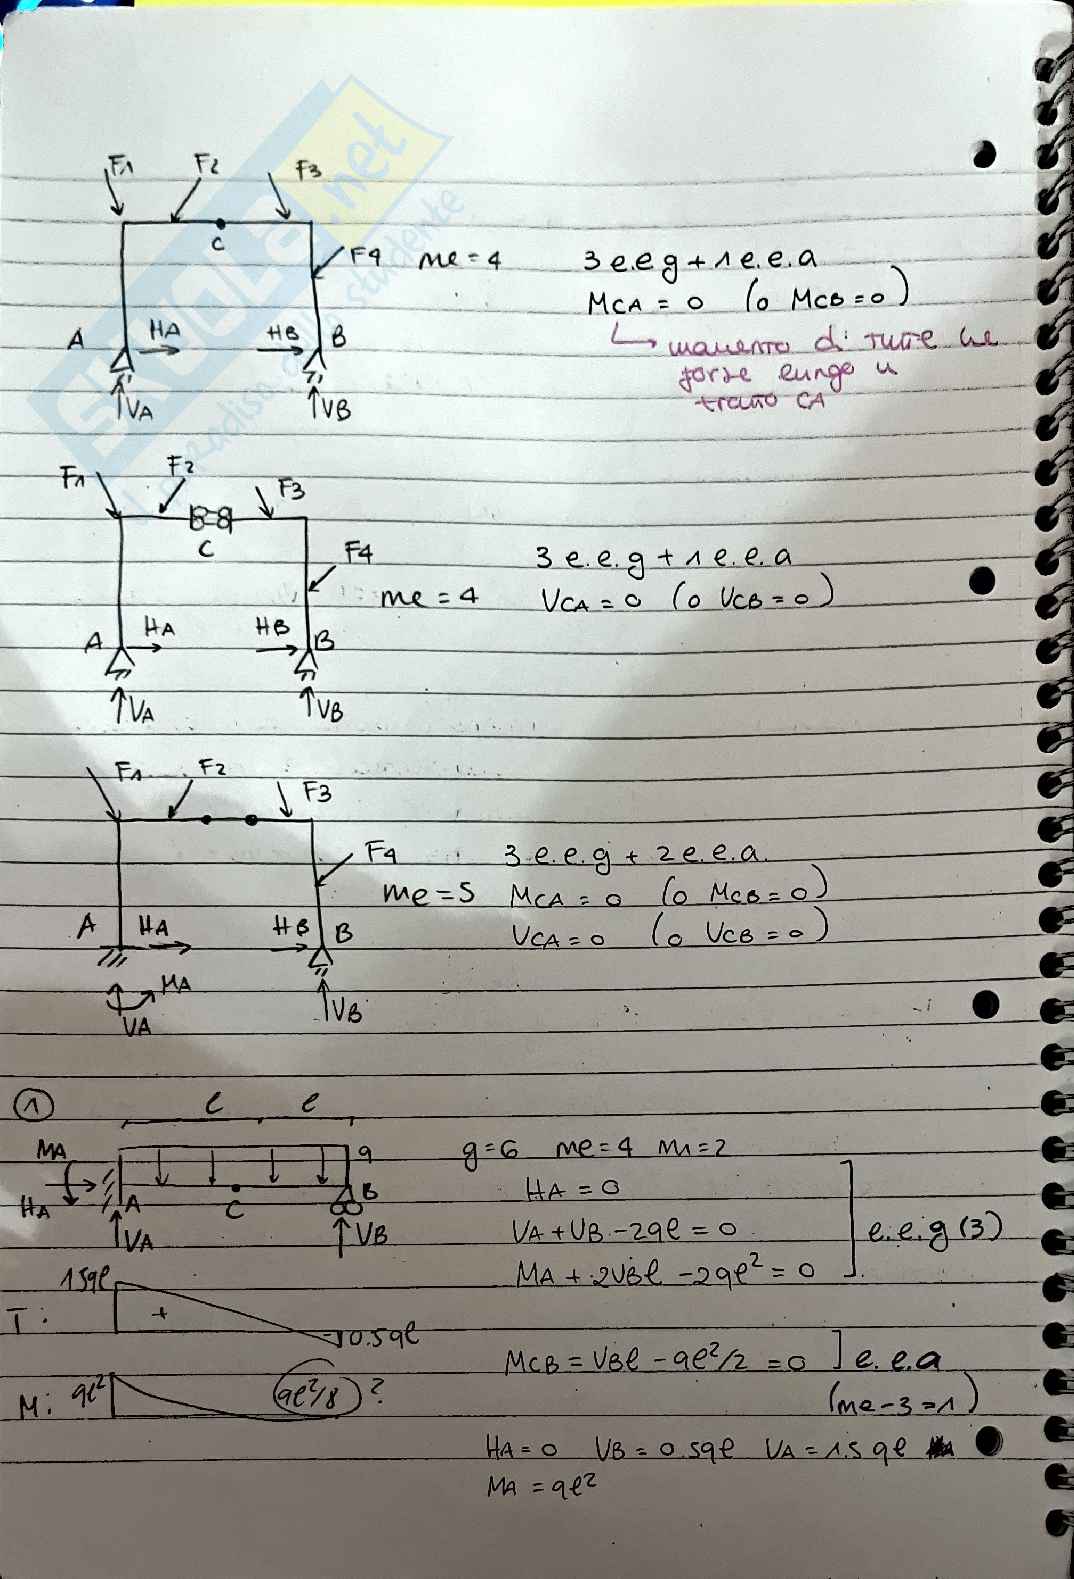 F1 F2 F3
C
F4 me = 4 3 e.e.g + 1 e.e.a
MCA = 0 (o MCB = 0)
A HA HB B
momento di tutte le
forze lungo il
tratto CA
VA VB
F1 F2 F3
C
F4 3 e.e.g + 1 e.e.a
me = 4 VCA = 0 (o VCB = 0)
A HA HB B
VA VB
F1 F2 F3
F4 3 e.e.g + 2 e.e.a.
me = 5 MCA = 0 (o MCB = 0)
A HA HB B VCA = 0 (o VCB = 0)
MA
VA VB
1 l l
MA q g=6 me=4 m1=2
HA A C B HA = 0
VA VB VA + VB - 2ql = 0 e.e.g (3)
MA + 2VBl - 2ql² = 0
1.5ql
T: + - 0.5ql
MCB = VBl - ql²/2 = 0 ] e.e.a
M: ql² ql²/8 ? (me-3=1)
HA = 0 VB = 0.5ql VA = 1.5 ql
MA = ql²
SKUOLA.net
il paradiso dello studente